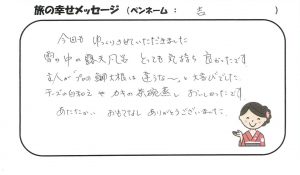 旅の幸せメッセージ（ペンネーム ： 吉 ）
今回も ゆっくりさせていただきました
雪の中の露天風呂 とても気持ち良かったです
主人が「プロの鰤大根は違うな〜」と大喜びでした
チーズの白和えや カキの茶碗蒸し おいしかったです
あたたかい おもてなし ありがとうございました